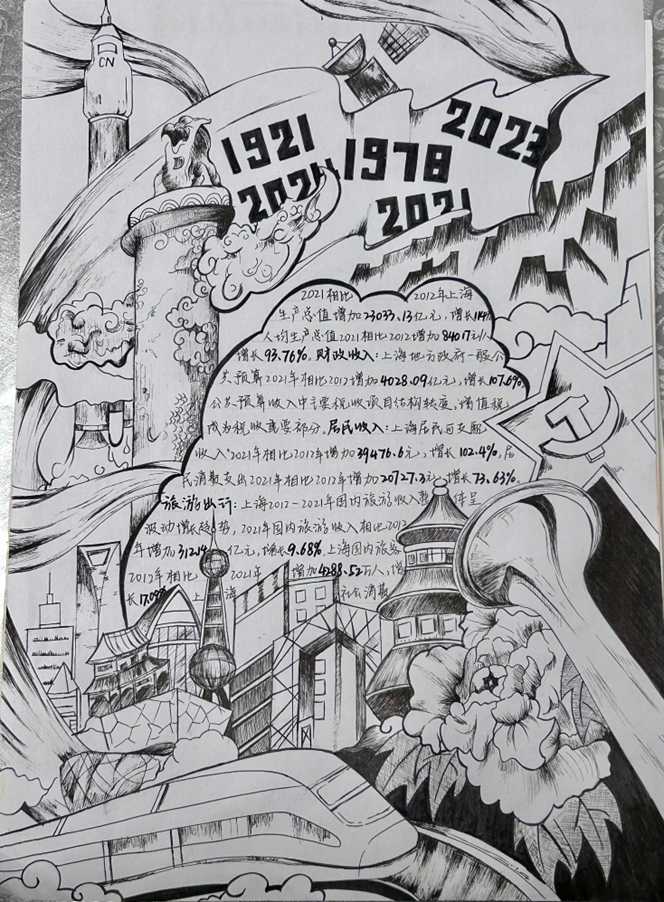 CN
1921
1978
2023
2021
2021相比 2012年上海
生产总值增加23033.13亿元，增长114%
人均生产总值2021相比2012增加84017元/人
增长93.76%。财政收入：上海地方政府一般公
共预算2021年相比2012增加4028.09亿元，增长107.69%
公共预算收入中主要税收项目结构转变，增值税
成为税收重要部分。居民收入：上海居民可支配
收入2021年相比2012年增加39476.6元，增长102.4%，居
民消费支出2021年相比2012年增加20727.3元，增长73.63%。
旅游出行：上海2012-2021年国内旅游收入整体呈
波动增长趋势，2021年国内旅游收入相比2012
年增加312.14亿元，增长9.68%，上海国内旅客
2012年相比 2021年 增加4288.52万人，增
长17.09% 上海 社会消费